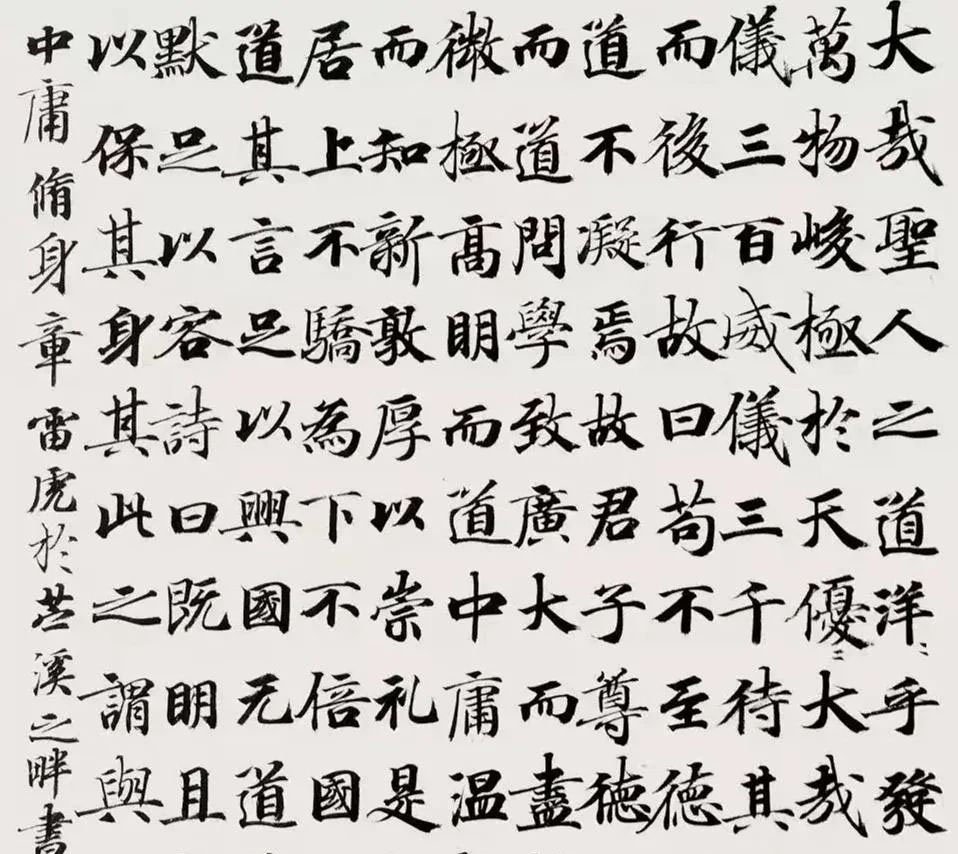 大哉聖人之道洋〻乎發
萬物峻極於天優〻大哉
儀三百威儀三千待其
而後行故曰苟不至德
道不凝焉故君子尊德
而道問學致廣大而盡
微極高明而道中庸温
而知新敦厚以崇礼是
居上不驕為下不倍國
道其言足以興國无道
默足以容詩曰既明且
以保其身其此之謂與
中庸脩身章雷虎於苕溪之畔書